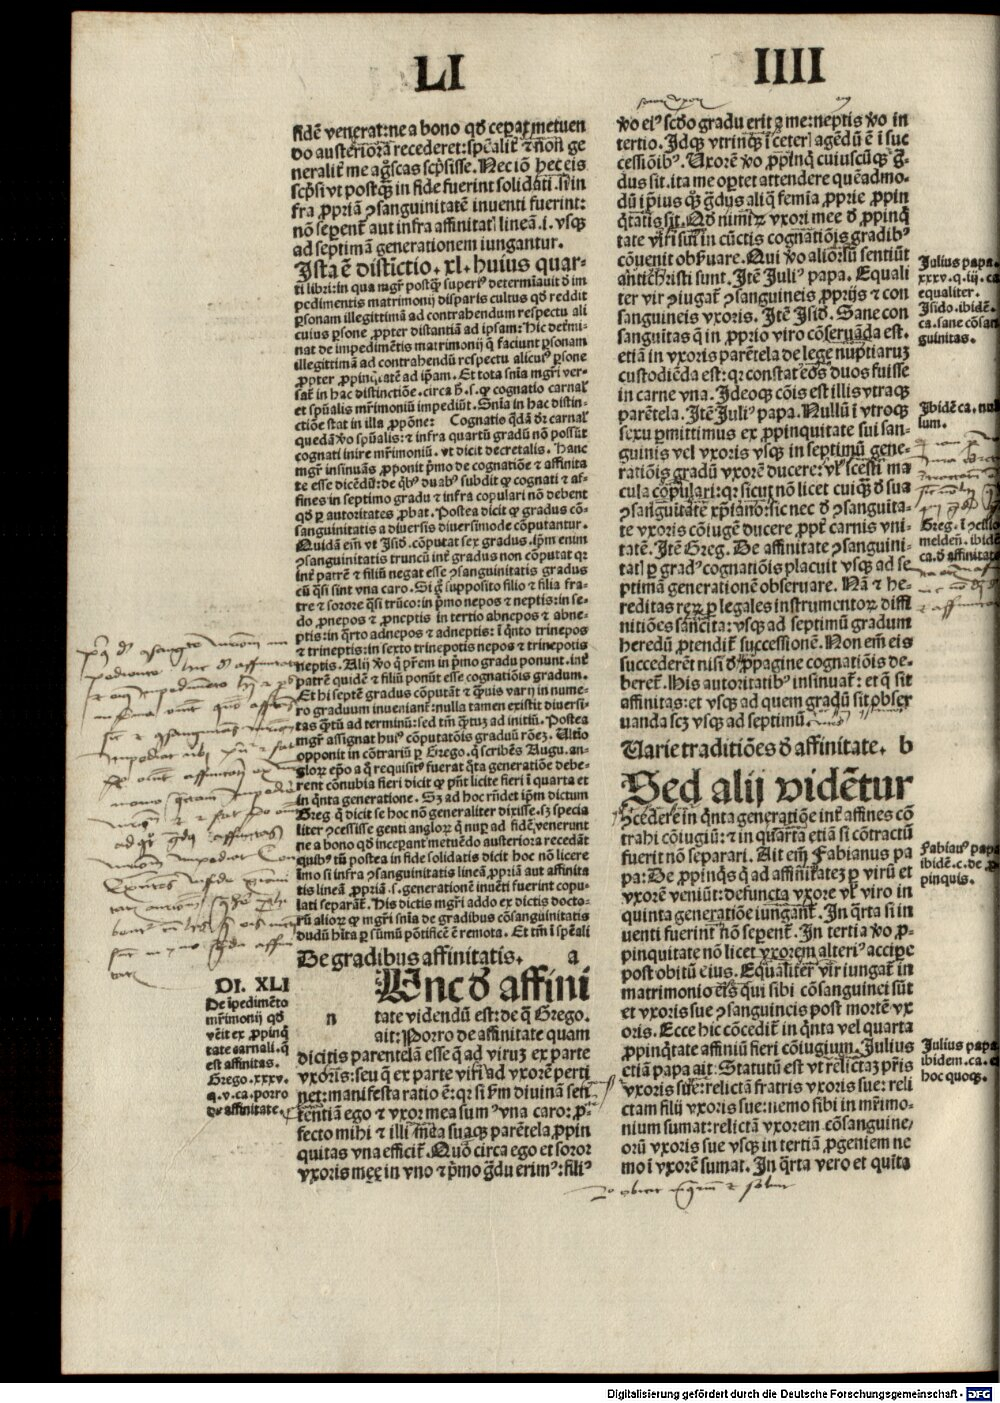 LI
IIII
fidē venerāt: ne a bono qd ceperāt metuen
do austeriora recederet: spēalit̄ ⁊ non ge
neralit̄ me āgl̄scas scp̄sisse. Nec iō hec eis
scp̄si vt postq̄ȝ in fide fuerint solidati. si in
fra ꝓpriā ꝯsanguinitatē inuenti fuerint:
nō sepent̄ aut infra affinitat̄ lineā .i. vsqȝ
ad septimā generationem iungantur.
Ista ē distīctio. xl. huius quar-
ti libri: in qua mgr̄ postqȝ superi⁹ determīauit d̄ im
pedimentis matrimonij disparis cultus qd reddit
ꝑsonam illegittimā ad contrahendum respectu ali
cuius ꝑsone ꝓpter distantiā ad ipsam: hic det̄mi-
nat de impedimētis matrimonij q̄ faciunt ꝑsonam
illegittimā ad contrahendū respectu alicui⁹ ꝑsone
ꝓpter ꝓpinq̄tatē ad ip̄am. Et tota snīa mgr̄i ver-
sat̄ in hac distinctiōe. circa h̄. s. qꝫ cognatio carnal̄
et spūalis mr̄imoniū impediūt. Snīa in hac distin-
ctiōe stat in illa ꝓpōne: Cognatis q̄dā d̄r carnal̄
quedā v̄o spūalis: ⁊ infra quartū gradū nō possūt
cognati inire mr̄imoniū. vt dicit decretalis. Hanc
mgr̄ insinuās ꝓponit pͥmo de cognatiōe ⁊ affinita
te esse dicēdū: de qͥb⁹ duab⁹ subdit qꝫ cognati ⁊ af-
fines in septimo gradu ⁊ infra copulari nō debent
qd ꝑ autoritates ꝓbat. Postea dicit qꝫ gradus cō-
sanguinitatis a diuersis diuersimode cōputantur.
Quidā em̄ vt Isid̄. cōputat sex gradus. ip̄m enim
ꝯsanguinitatis truncū int̄ gradus non cōputat qꝛ
int̄ patrē ⁊ filiū negat esse ꝯsanguinitatis gradus
cū q̄si sint vna caro. Si ḡ supposito filio ⁊ filia fra-
tre ⁊ sorore q̄si trūco: in pͥmo nepos ⁊ neptis: in se-
do ꝓnepos ⁊ ꝓneptis in tertio abnepos ⁊ abne-
ptis: in q̄rto adnepos ⁊ adneptis: ī q̄nto trinepos
⁊ trineptis: in sexto trinepotis nepos ⁊ trinepotis
neptis. Alij v̄o q̄ pr̄em in pͥmo gradu ponunt. int̄
patrē quidē ⁊ filiū ponūt esse cognatiōis gradum.
Et hi septē gradus cōputāt ⁊ qͣuis varij in nume-
ro graduum inueniant̄: nulla tamen existit diuersi-
tas qͣtū ad terminū: sed tm̄ qͣtuȝ ad initiū. Postea
mgr̄ assignat hui⁹ cōputatōis graduū rōeȝ. Ultīo
opponit in cōtrariū ꝑ Grego. q̄ scribēs Augu. an-
gloꝝ epo a q̄ requisit⁹ fuerat q̄ta generatiōe debe-
rent cōnubia fieri dicit qꝫ pn̄t licite fieri ī quarta et
in q̄nta generatione. Sȝ ad hoc rn̄det ip̄m dictum
Greg. q̄ dicit se hoc nō generaliter dixisse. sȝ specia
liter ꝯcessisse genti angloꝝ q̄ nuꝑ ad fidē venerunt
ne a bono qd inceperant metuēdo austeriora recedāt
quib⁹ tn̄ postea in fide solidatis dicit hoc nō licere
īmo si infra ꝯsanguinitatis lineā ꝓpriā aut affinita
tis lineā ꝓpriā .s. generationē inuēti fuerint copu-
lati separāt̄. His dictis mgr̄i addo ex dictis docto-
rū alioꝝ qꝫ mgr̄i snīa de gradibus cōsanguinitatis
dudū hīta ꝑ sūmū pōtificē ē remota. Et tm̄ ī spēali
De gradibus affinitatis. a
DI. XLI
De īpedimēto
mr̄imonij qd
vēit ex ꝓpinq̄
tate carnali. q̄
est affinitas.
Grego. xxxv.
q. v. ca. porro
de affinitate.
Unc d̄ affini
n
tate videndū est: de q̄ Grego.
ait: Porro de affinitate quam
dicitis parentelā esse q̄ ad viruȝ ex parte
vxoris: seu q̄ ex parte viri ad vxorē perti
net: manifesta ratio ē: qꝛ si ẜm diuinā sen
tentiā ego ⁊ vxor mea sum⁹ vna caro: ꝓ-
fecto mihi ⁊ illi mea suaqȝ parētela ꝓpin
quitas vna efficit̄. Quō circa ego et soror
vxoris męę in vno ⁊ pͥmo gͣdu erim⁹: fili⁹
v̄o ei⁹ scd̄o gradu erit ꝫ me: neptis v̄o in
tertio. Idqȝ vtrinqȝ ī ceter̄ agēdū ē ī suc
cessiōib⁹. Uxorē v̄o ꝓpinq̄ cuiuscūqȝ gͣ-
dus sit. ita me oꝑtet attendere quēadmo-
dū ip̄ius qͣȝ gͣdus aliq̄ femīa ꝓprie ꝓpin
q̄tatis sit. Qd nimiꝝ vxori mee d̄ ꝓpinq̄
tate viri sui in cūctis cognatiōis gradib⁹
cōuenit obẜuare. Qui v̄o aliorsū sentiūt
antichristi sunt. Itē Juli⁹ papa. Equali
ter vir ꝯiugat̄ ꝯsanguineis ꝓprijs ⁊ con
sanguineis vxoris. Itē Isid̄. Sane con
sanguītas q̄ in ꝓprio viro cōseruāda est.
etiā in vxoris parētela de lege nuptiaruȝ
custodiēda est: qꝛ constat eos duos fuisse
in carne vna. Ideoqȝ cōis est illis vtraqȝ
parētela. Itē Juli⁹ papa. Nullū ī vtroqȝ
sexu ꝑmittimus ex ꝓpinquitate sui san-
guinis vel vxoris vsqȝ in septimū gene-
ratiōis gradū vxorē ducere: vl̄ scesti ma
cula cōpulari: qꝛ sicut nō licet cuiqȝ d̄ sua
ꝯsanguitatē xp̄iano: sic nec d̄ ꝯsanguita-
te vxoris cōiugē ducere ꝓpt̄ carnis vni-
tatē. Itē Greg. De affinitate ꝯsanguini-
tat̄ ꝑ grad⁹ cognatiōis placuit vsqȝ ad se
ptimā generationē obseruare. Nā ⁊ he-
reditas reꝝ ꝑ legales instrumentoꝝ diffi
nitiōes sancita: vsqȝ ad septimū gradum
heredū ꝓtendit̄ successionē. Non em̄ eis
succederēt nisi d̄ ꝓpagine cognatiōis de-
beret̄. His autoritatib⁹ insinuat̄: et q̄ sit
affinitas: et vsqȝ ad quem gradū sit obser
uanda sc̄ȝ vsqȝ ad septimū.
Uarie traditiōes d̄ affinitate. b
Sed alij vidētur
ꝯcedere in q̄nta generatiōe int̄ affines cō
trahi cōiugiū: ⁊ in quarta etiā si cōtractū
fuerit nō separari. Ait em̄ Fabianus pa
pa: De ꝓpinqͥs q̄ ad affinitateȝ ꝑ virū et
vxorē veniūt: defuncta vxore vl̄ viro in
quinta generatiōe iungant̄. In q̄rta si in
uenti fuerint nō sepent̄. In tertia v̄o ꝓ-
pinquitate nō licet vxorem alteri⁹ accipe
post obitū eius. Equaliter vir iungat̄ in
matrimonio eis qui sibi cōsanguinei sūt
et vxoris sue ꝯsanguineis post mortē vx
oris. Ecce hic cōcedit̄ in q̄nta vel quarta
ꝓpinq̄tate affiniū fieri cōiugium. Julius
etiā papa ait: Statutū est vt relictaȝ pr̄is
vxoris sue: relictā fratris vxoris sue: reli
ctam filij vxoris sue: nemo sibi in mr̄imo-
nium sumat: relictā vxorem cōsanguine/
orū vxoris sue vsqȝ in tertiā ꝓgeniem ne
mo ī vxorē sumat. In q̄rta vero et quīta
Julius papa.
xxxv. q. iij. ca
equaliter.
Isido. ibidē.
ca. sane cōsan
guinitas.
Ibidē ca. nul
lum.
Greg. ī ꝯcilio
melden̄. ibidē
ca. d̄ affinitate
Fabian⁹ papa
ibidē. c. de ꝓ
pinquis.
Julius papa
ibidem. ca. 
hoc quoqȝ.
Digitalisierung gefördert durch die Deutsche Forschungsgemeinschaft - DFG